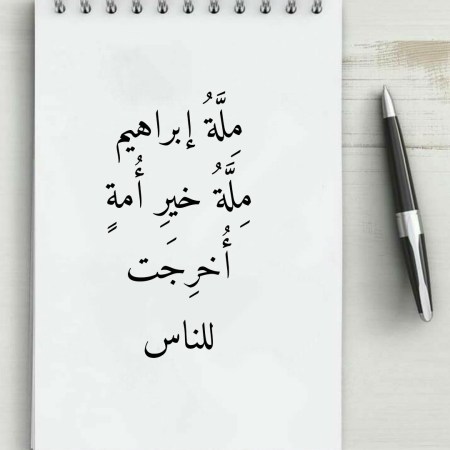 مِلَّةُ إبراهيم
مِلَّةُ خيرِ أُمةٍ
أُخرِجَت
للناس